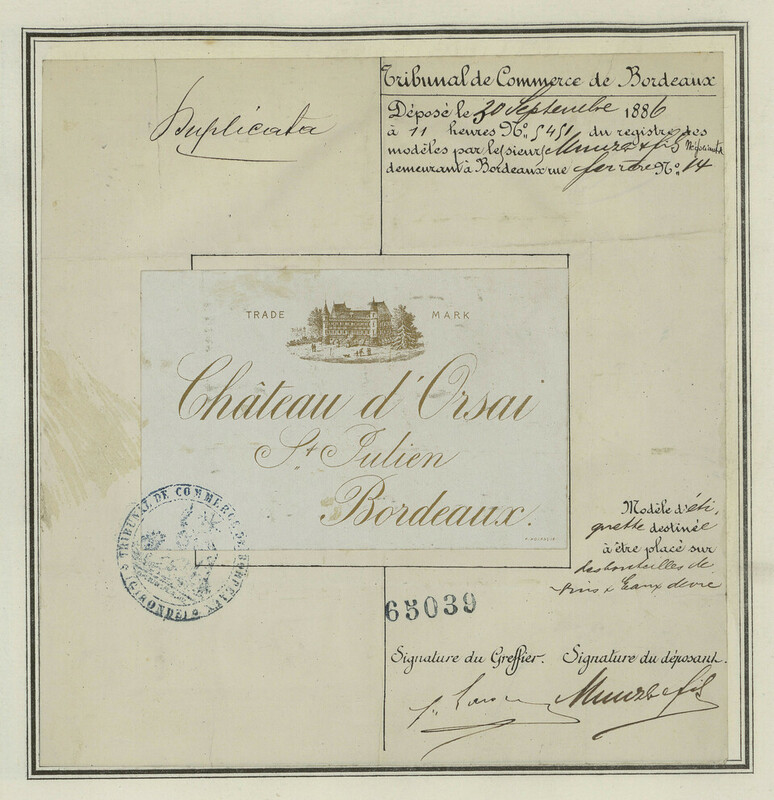 Duplicata
Tribunal de Commerce de Bordeaux
Déposé le 20 Septembre 1886
à 11 heures N° 5451 du registre des
modèles par le sieurs & fils Négociants
demeurant à Bordeaux rue ferrère N° 14
TRADE MARK
Château d'Orsai
St Julien
Bordeaux.
TRIBUNAL DE COMMERCE DE BORDEAUX
(GIRONDE)
Modèle d'éti,
quette destinée
à être placé sur
des bouteilles de
vins & Eaux de vie
65039
Signature du Greffier. Signature du déposant.
& fils